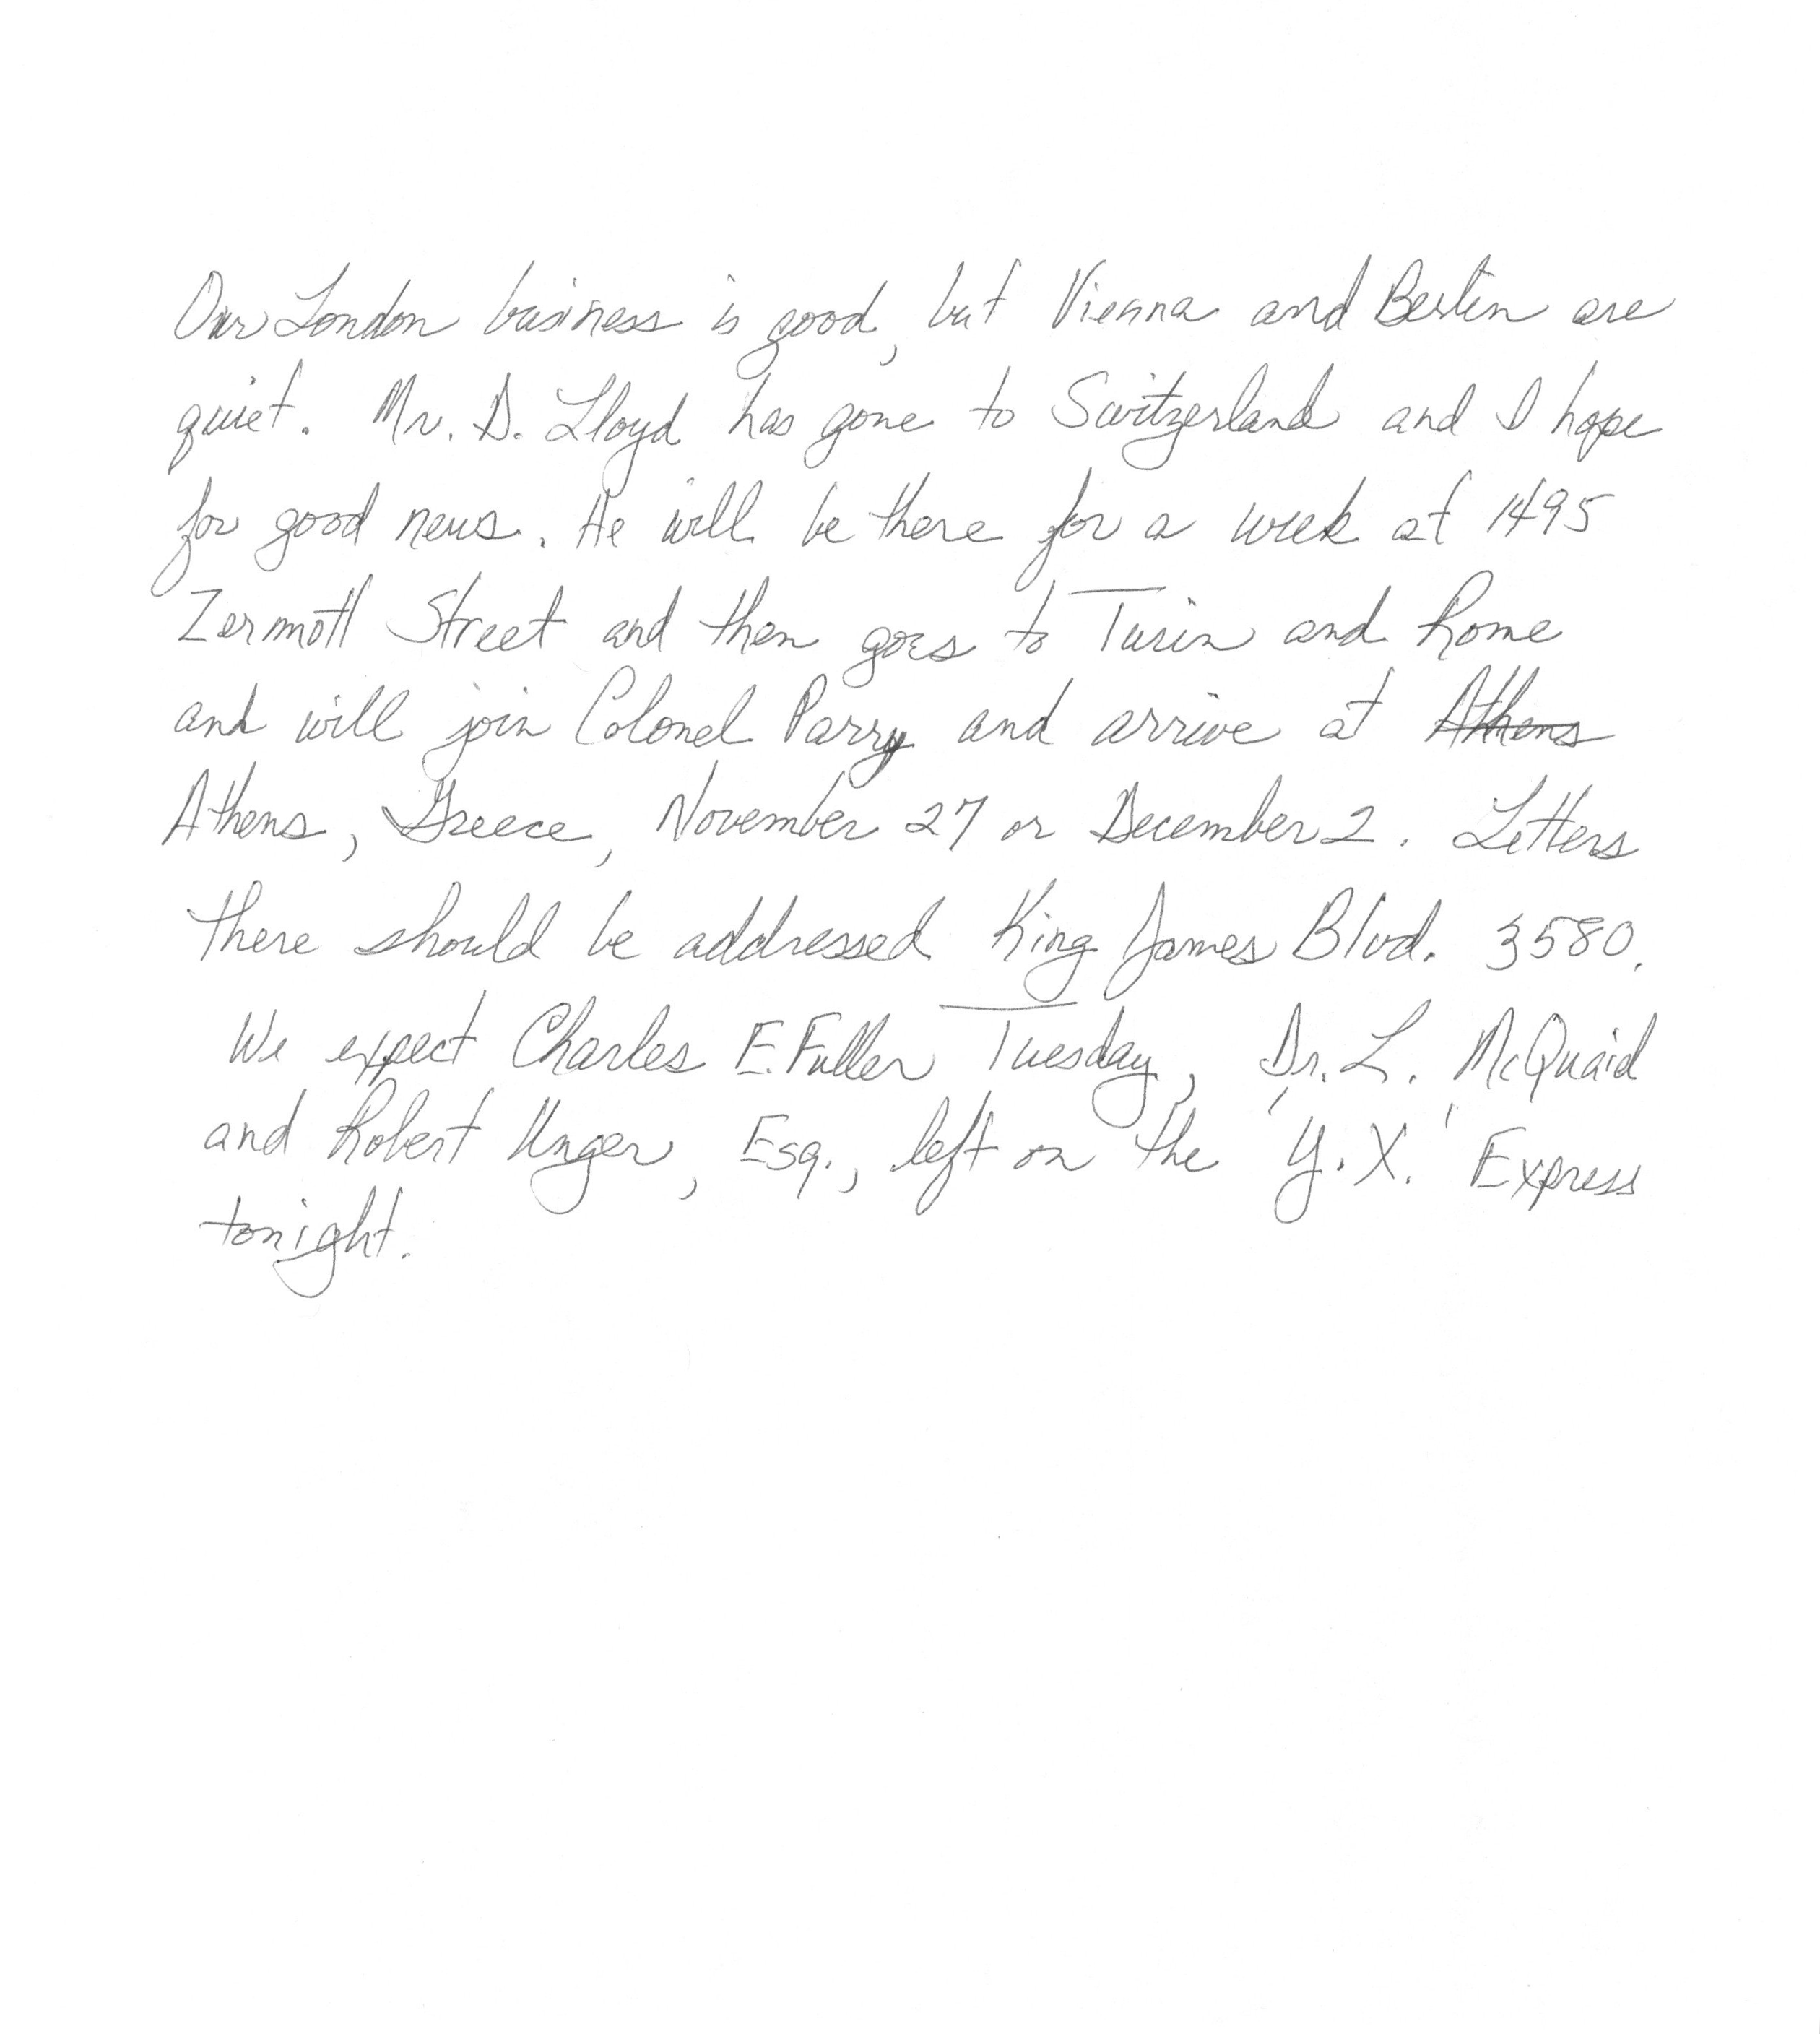 Our London business is good, but Vienna and Berlin are
quiet. Mr. D. Lloyd has gone to Switzerland and I hope
for good news. He will be there for a week at 1495
Zermott Street and then goes to Turin and Rome
and will join Colonel Parry and arrive at Athens
Athens, Greece, November 27 or December 2. Letters
there should be addressed King James Blvd. 3580.
We expect Charles E. Fuller Tuesday, Dr. L. McQuaid
and Robert Unger, Esq., left on the 'Y.X.' Express
tonight.